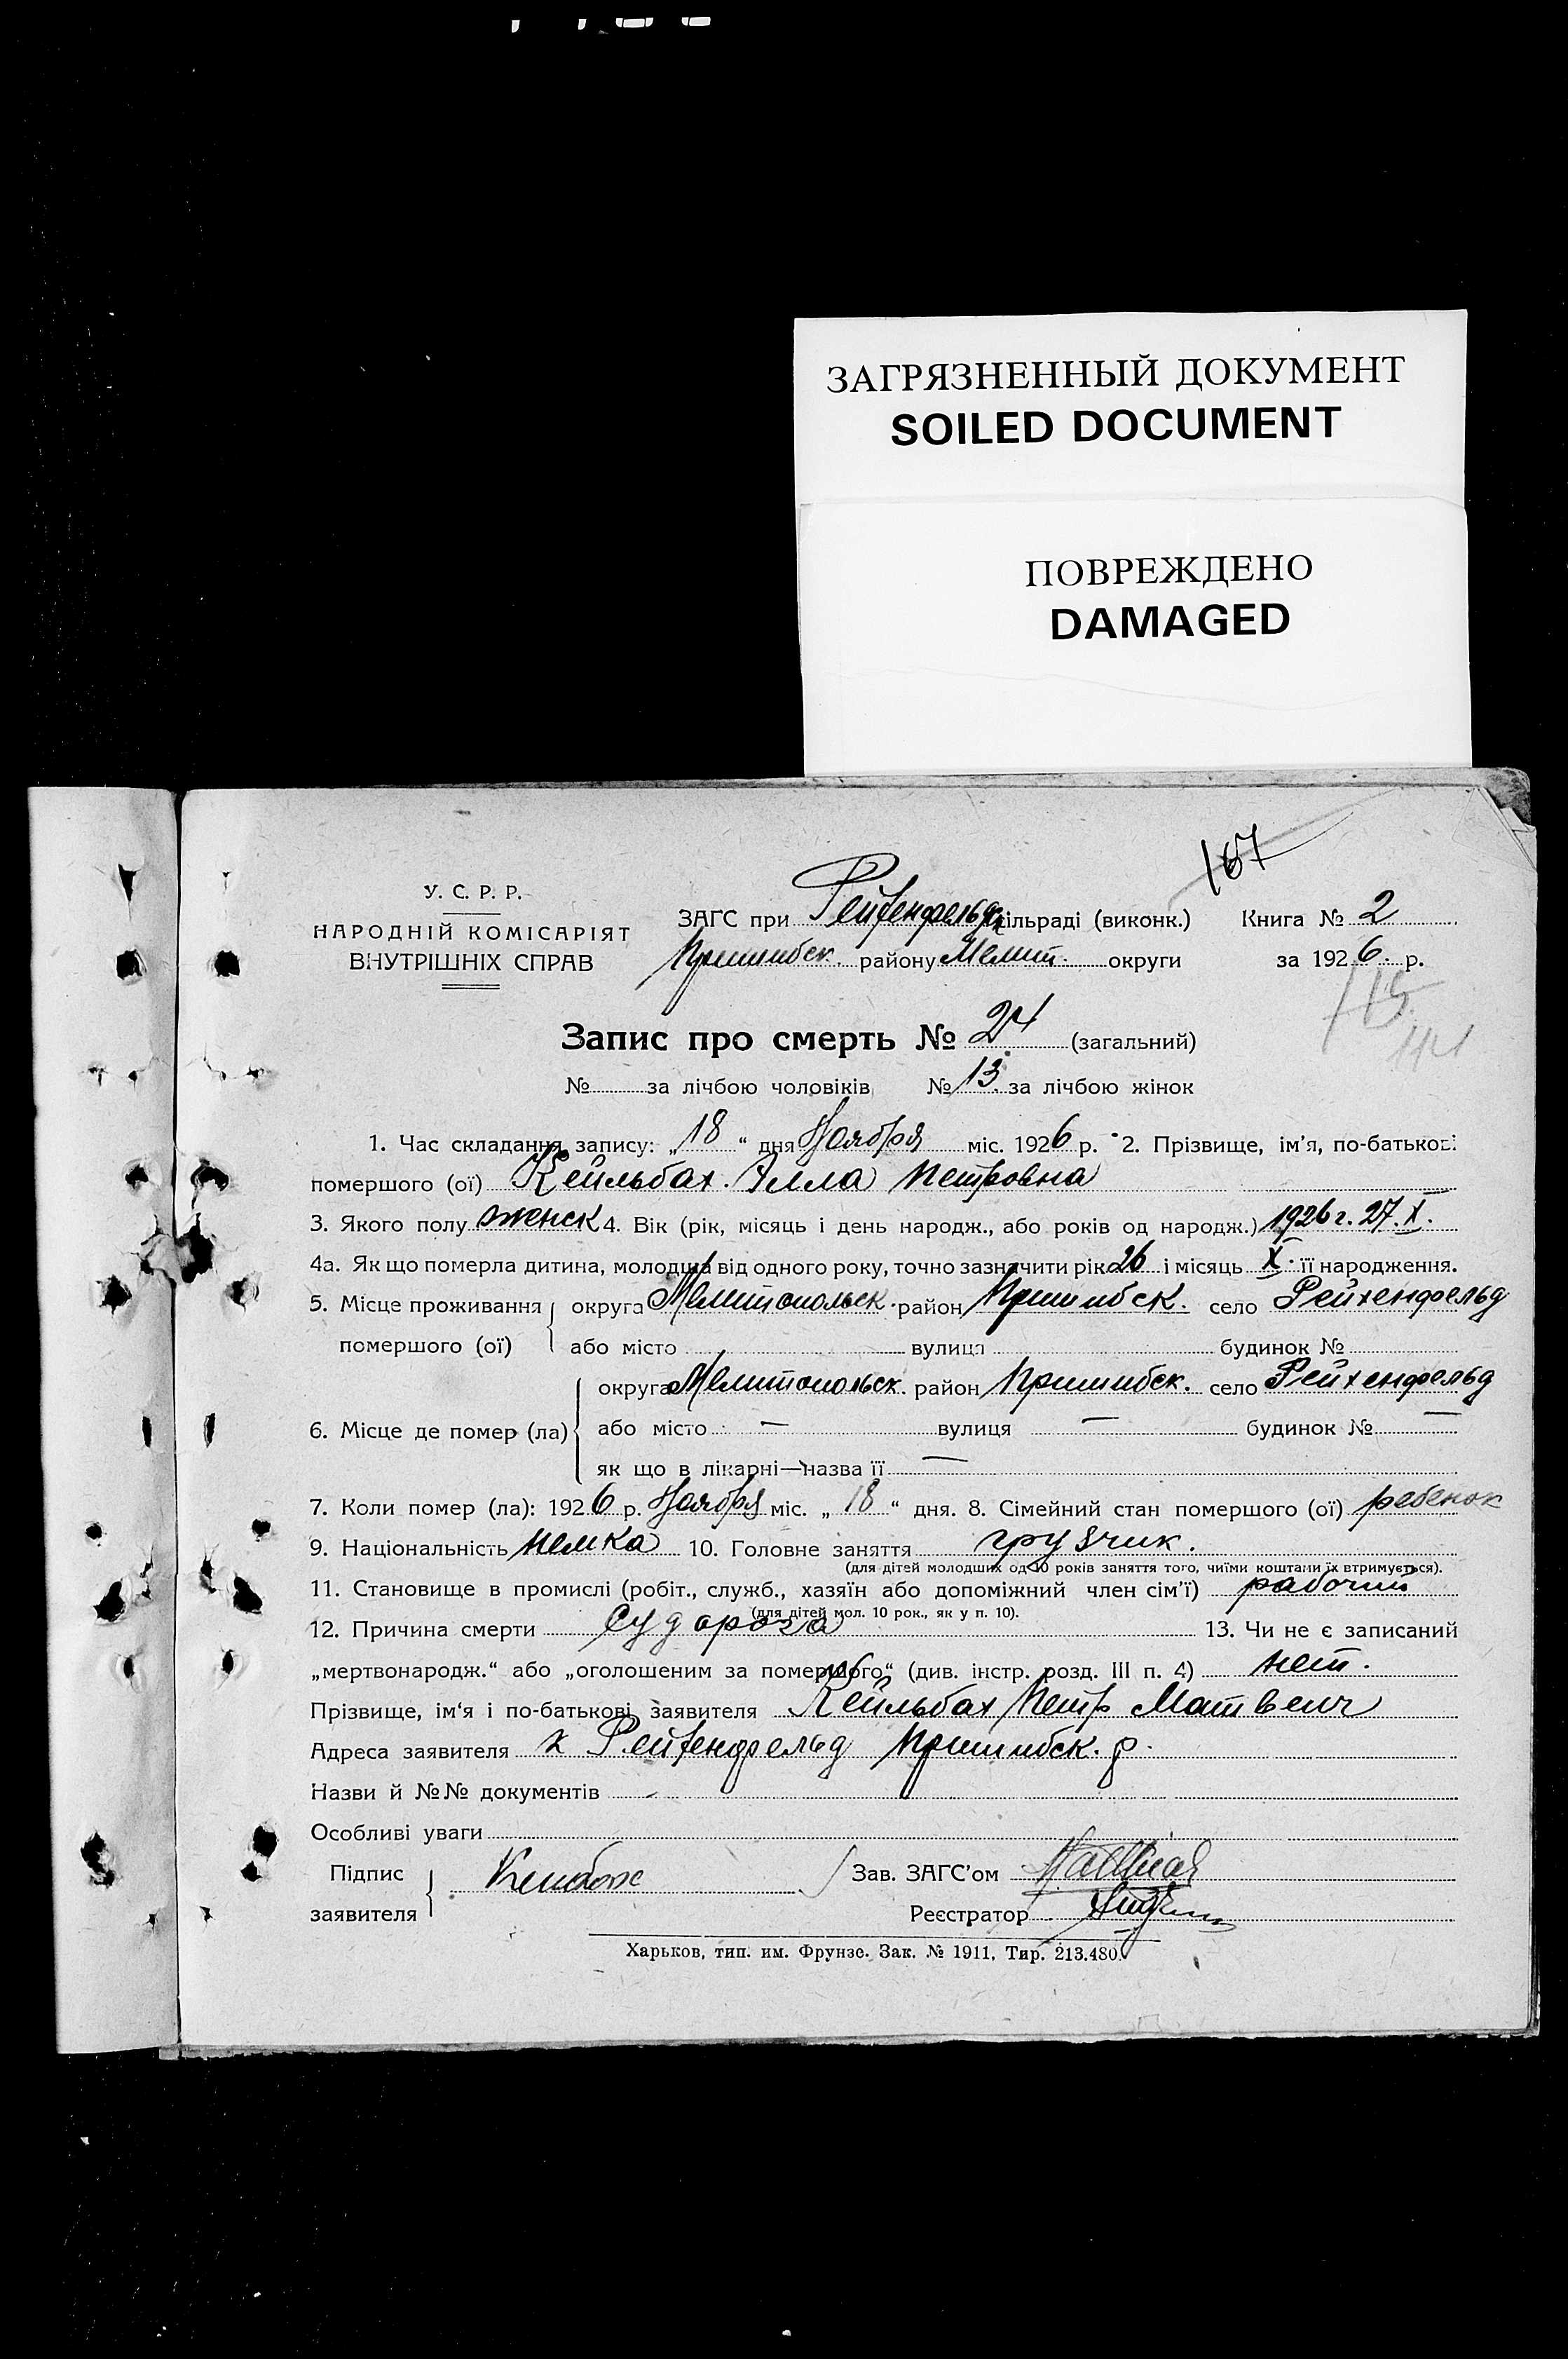 ЗАГРЯЗНЕННЫЙ ДОКУМЕНТ
SOILED DOCUMENT
ПОВРЕЖДЕНО
DAMAGED
167
У. С. Р. Р.
НАРОДНІЙ КОМІСАРІЯТ
ВНУТРІШНІХ СПРАВ
ЗАГС при Рейхенфельдс сільраді (виконк.) Книга № 2
Пришибск. району Мелит. округи за 1926 р.
115
141
Запис про смерть № 24 (загальний)
№ за лічбою чоловіків № 13 за лічбою жінок
1. Час складання запису: „18“ дня Ноября міс. 1926 р. 2. Прізвище, ім’я, по-батькові
помершого (ої) Кейльбах Элла Петровна
3. Якого полу женск 4. Вік (рік, місяць і день народж., або років од народж.) 1926 г. 27. X.
4а. Як що померла дитина, молодша від одного року, точно зазначити рік 26 і місяць X. її народження.
5. Місце проживання округа Мелитопольск. район Пришибск. село Рейхенфельд
помершого (ої) або місто вулиця будинок №
округа Мелитопольск. район Пришибск. село Рейхенфельд
6. Місце де помер (ла) або місто — вулиця — будинок № —
як що в лікарні—назва її —
7. Коли помер (ла): 1926 р. Ноября міс. „18“ дня. 8. Сімейний стан помершого (ої) ребенок
9. Національність немка 10. Головне заняття грузчик.
(для дітей молодших од 10 років заняття того, чиїми коштами їх втримується).
11. Становище в промислі (робіт., служб., хазяїн або допоміжний член сім’ї) рабочий
(для дітей мол. 10 рок., як у п. 10).
12. Причина смерти Судорога 13. Чи не є записаний
„мертвонародж.“ або „оголошеним за помершого“ (див. інстр. розд. III п. 4) нет.
Прізвище, ім‘я і по-батькові заявителя Кейльбах Петр Матвеич
Адреса заявителя к Рейхенфельд Пришибск. р.
Назви й №№ документів -
Особливі уваги
Підпис заявителя Зав. ЗАГС’ом
Реєстратор
Харьков, тип. им. Фрунзе. Зак. № 1911, Тир. 213.480.